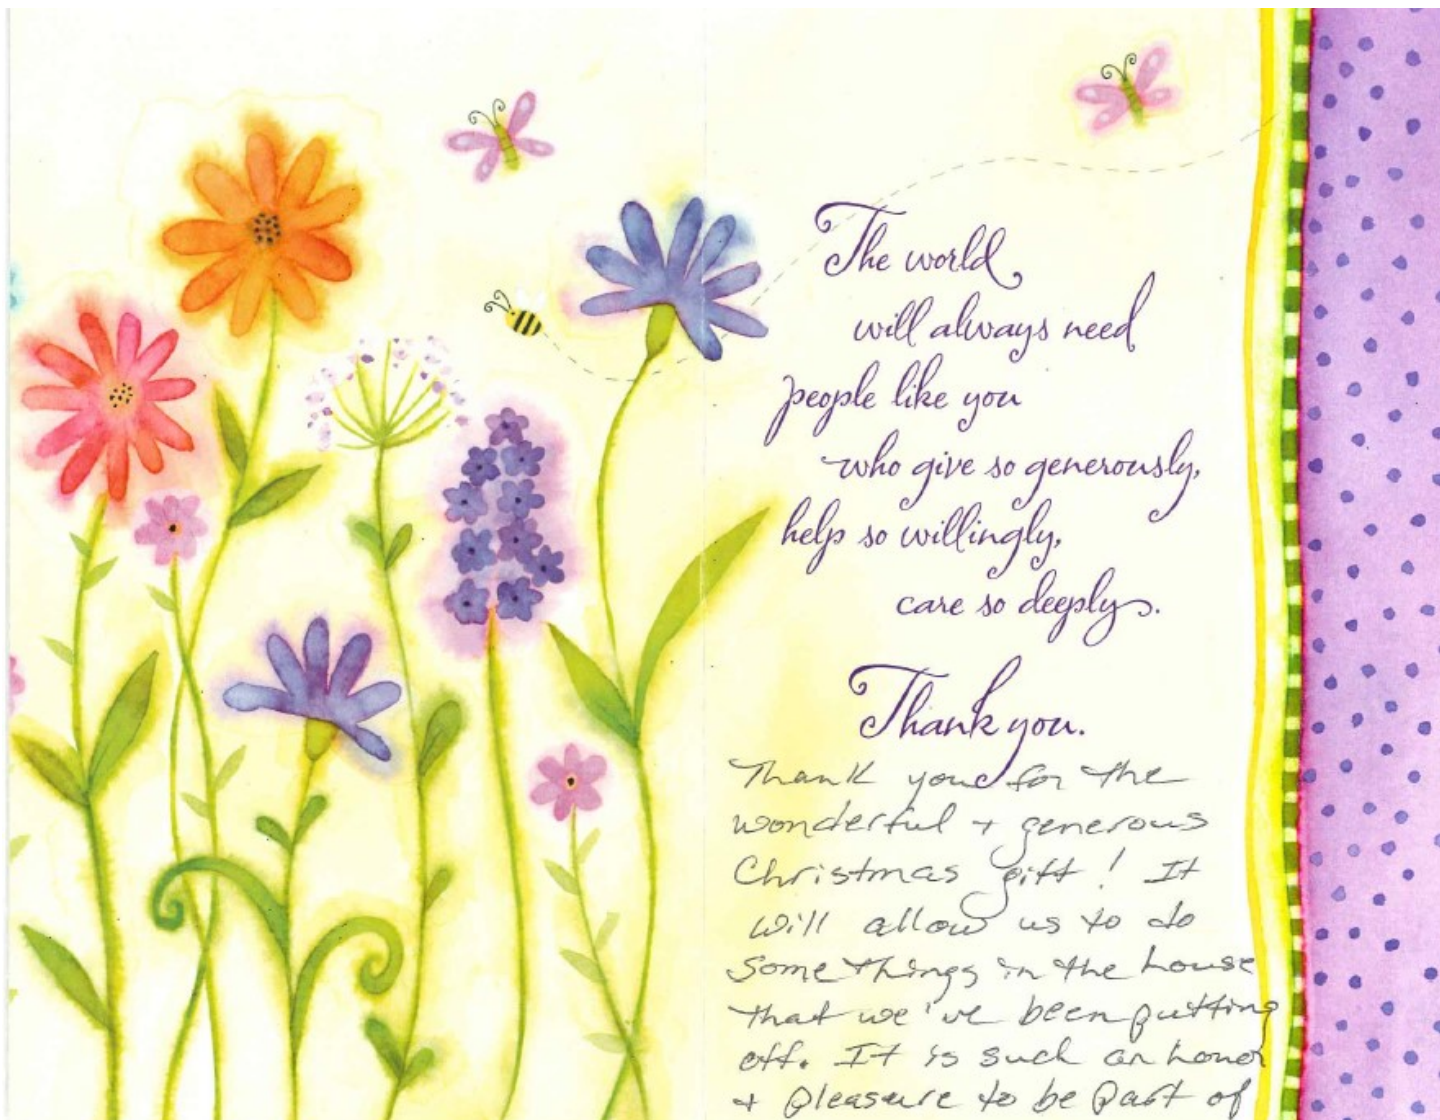 The world
will always need
people like you
who give so generously,
help so willingly,
care so deeply.
Thank you.
Thank you for the
wonderful + generous
Christmas gift! It
will allow us to do
some things in the house
that we've been putting
off. It is such an honor
+ pleasure to be part of